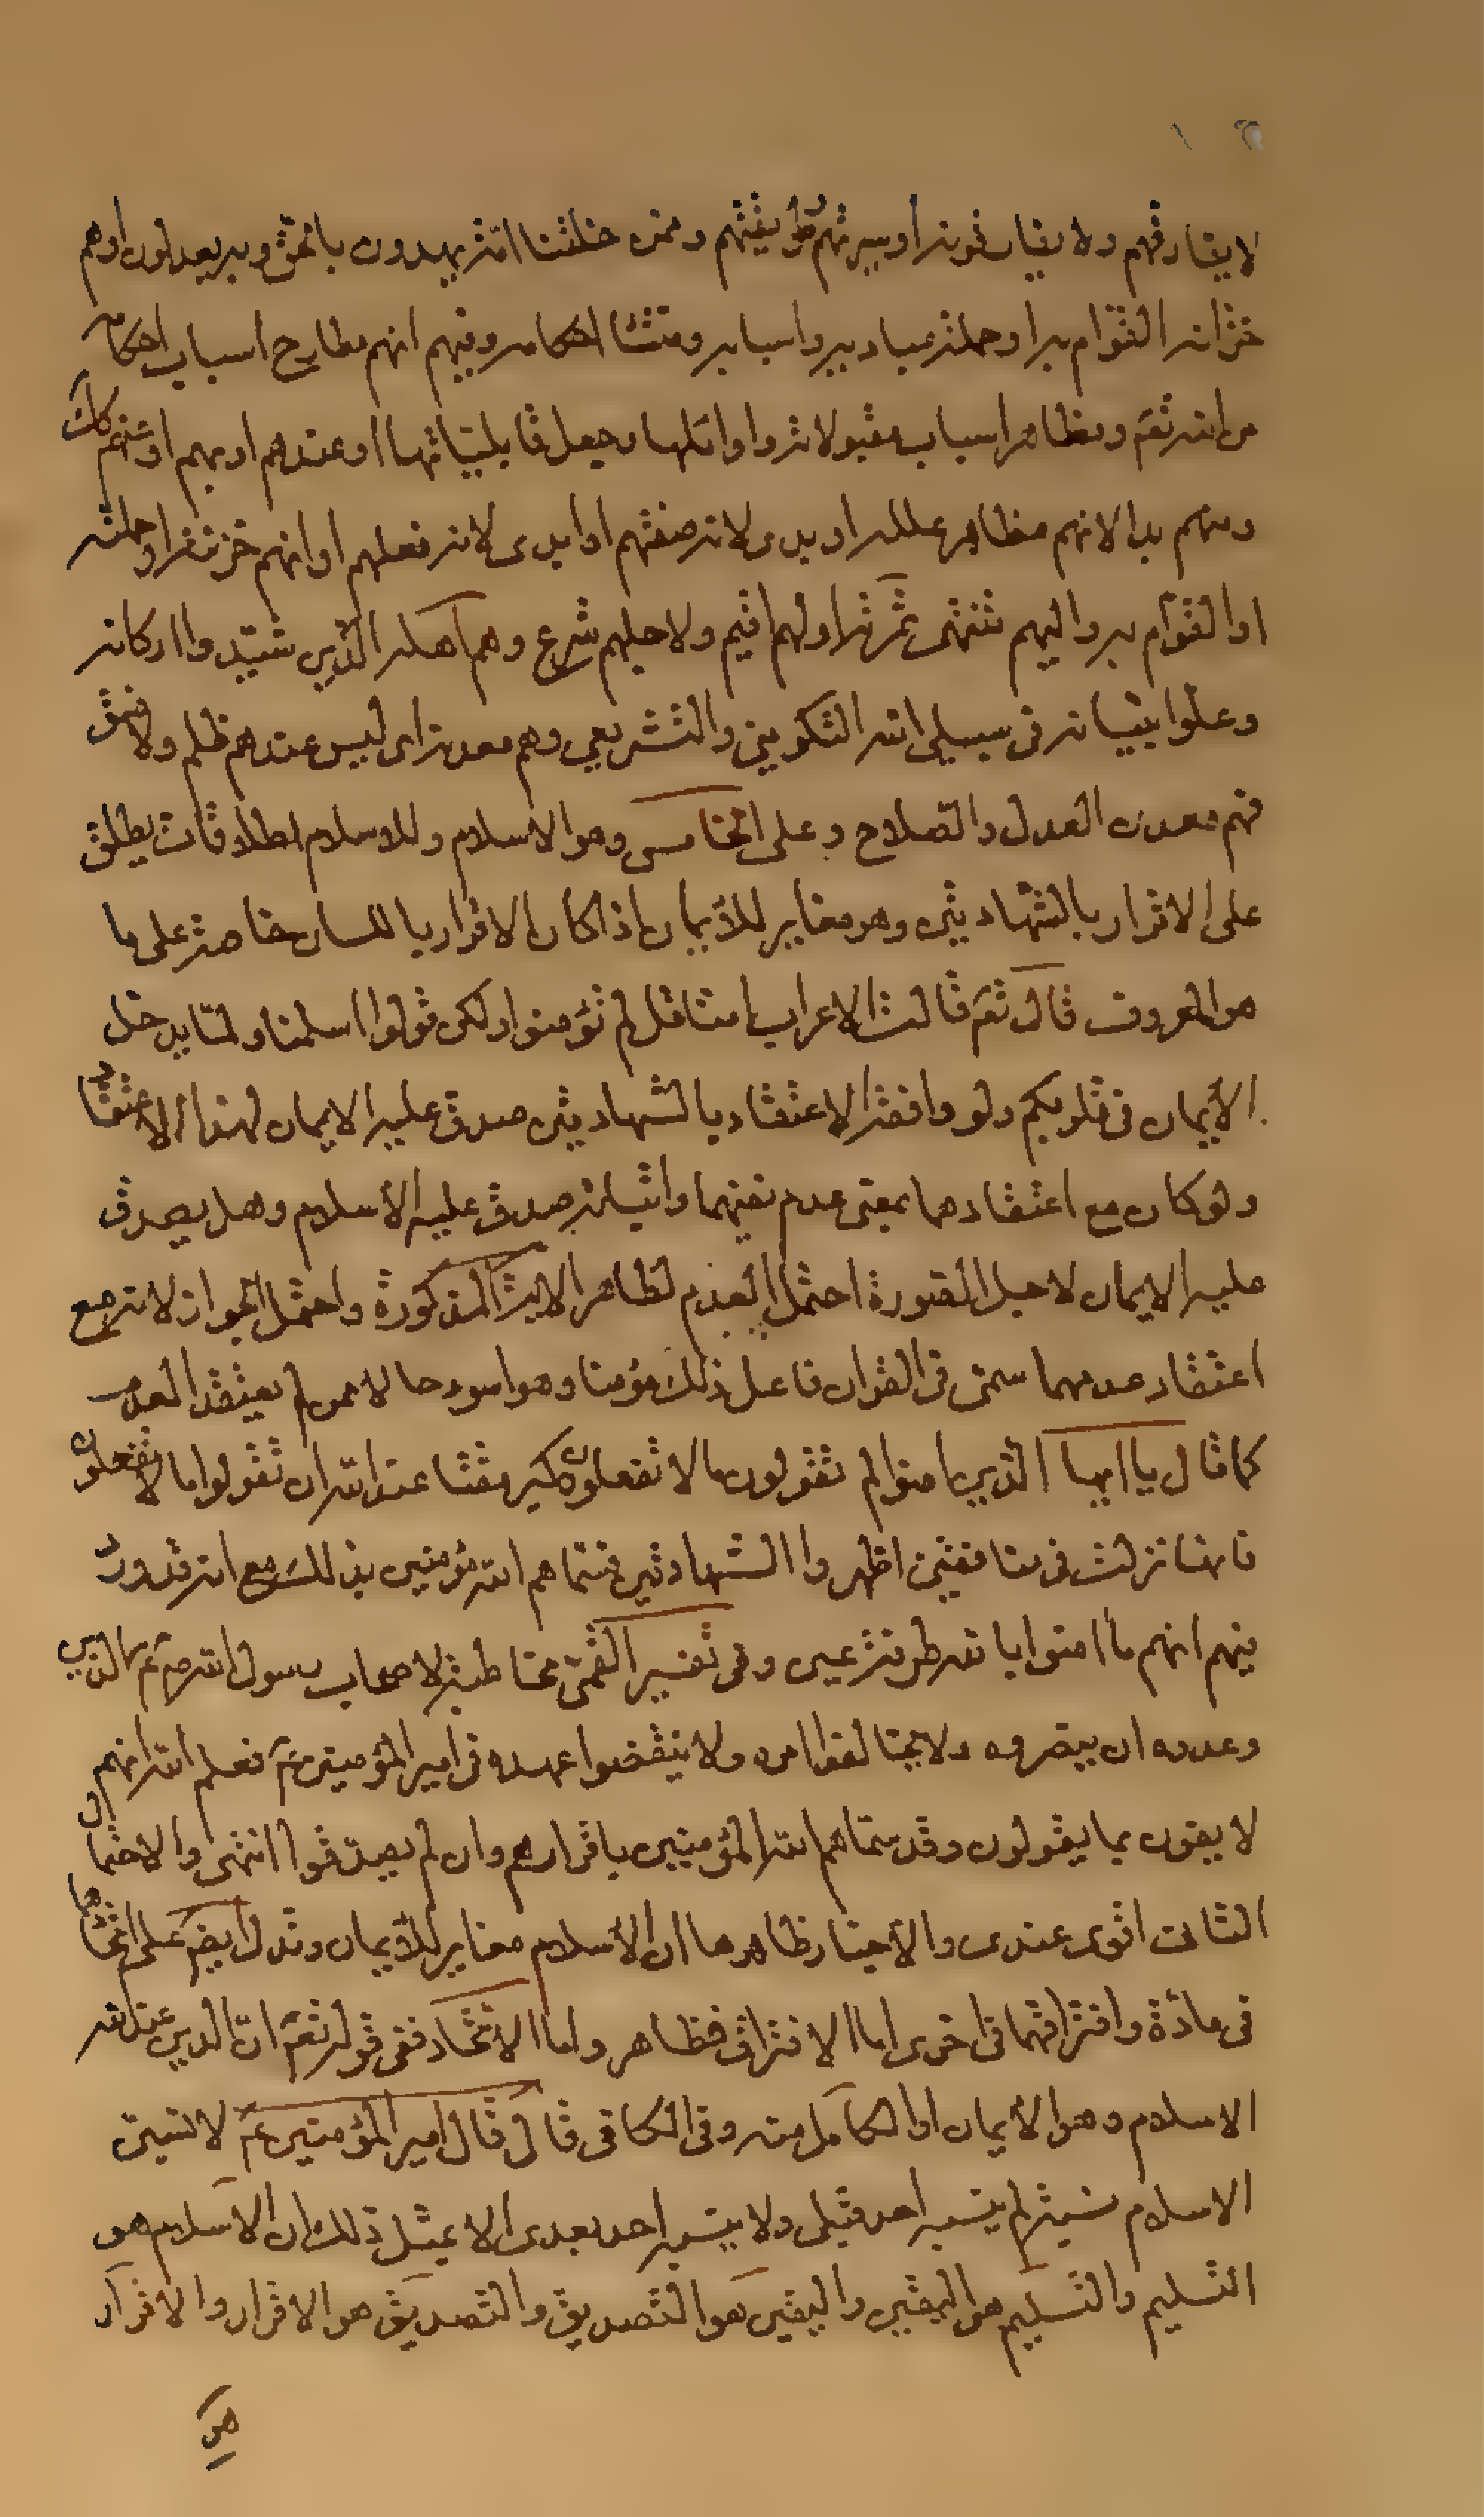 لا يفارقهم ولا يفارقونه او سيرتهم طريقتهم وممن خلقنا امة يهدون بالحق وبه يعدلون او هم
خزانه القوام به او حملة مباديه واسبابه ومنشا احكامه وفيهم انهم مطارح اسباب احكام
من الله تعَ ومظاهر اسباب مقبولاته واوائلها وجعل قابلياتها او عندهم او بهم او منهم كل
ومنهم بدا لانهم مظاهر علله او بدئ لانه صفتهم او بدئ لانه فعلهم او انهم خزنته او حملته
او القوام به واليهم تنتهى ثمرته او لهم اقيم ولاجلهم شرع وهم اهله الذين شيدوا اركانه
وعلوا بنيانه فى سبيلى الله التكوينى والتشريعي وهم معدنه اى ليس عندهم ظلم ولا فسق
فهم معدن العدل والصلاح وعلى الخامس وهو الاسلام وللاسلام اطلاقات يطلق
على الاقرار بالشهادتين وهو مغاير للأيمان اذا كان الاقرار باللسان خاصة على ما
هو المعروف قال تعَ قالت الاعراب امنا قل لم تؤمنوا ولكن قولوا اسلمنا ولمّا يدخل
الأيمان فى قلوبكم ولو وافقه الاعتقاد بالشهادتين صدق عليه الايمان لهذا الاعتقاد
ولو كان مع اعتقادهما بمعنى عدم نفيهما واثباته صدق عليه الأسلام وهل يصدق
عليه الايمان لاجل الصورة احتمل العدم لظاهر الاية المذكورة واحتمل الجواز لانه مع
اعتقاد عدمهما سمى فى القران فاعل ذلك مؤمنا وهو اسوء حالا ممن لم يعتقد العدم
كما قال يا ايها الذين امنوا لم تقولون ما لا تفعلون كبر مقتا عند الله ان تقولوا ما لا تفعلون
فانها نزلت فى منافقين اظهروا الشهادتين فسماهم الله مؤمنين بذلك مع انه قد ورد
فيهم انهم ما امنوا بالله طرفة عين وفى تفسير القمى مخاطبة لاصحاب رسول الله صَ الذين
وعدوه ان ينصروه ولا يخالفوا امره ولا ينقضوا عهده فى امير المؤمنين عَ فعلم الله انهم
لا يفون بما يقولون وقد سماهم الله المؤمنين باقرارهم وان لم يصدقوا انتهى والاحتمال
الثانى اقوى عندى والأخبار ظاهرها ان الأسلام مغاير للأيمان وتدل ايضَ على اتحادهما
فى مادة وافتراقهما فى اخرى اما الافتراق فظاهر واما الاتحاد ففى قوله تعَ ان الدين عند الله
الاسلام وهو الأيمان او الكامل منه وفى الكافى قال قال امير المؤمنين عَ لانسبن
الاسلام نسبة لم ينسبه احد قبلى ولا ينسبه احد بعدى الا بمثل ذلك ان الاسلام هو
التسليم والتسليم هو اليقين واليقين هو التصديق والتصديق هو الاقرار والاقرار
هو